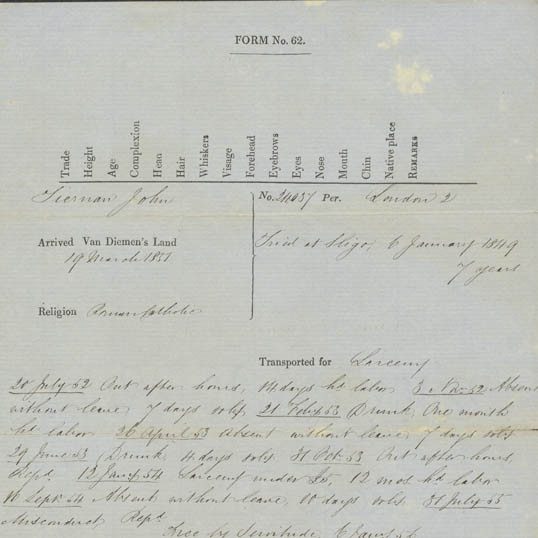 FORM No. 62.
Trade
Height
Age
Complexion
Head
Hair
Whiskers
Visage
Forehead
Eyebrows
Eyes
Nose
Mouth
Chin
Native place
REMARKS
Tiernan John
No. 24457 Per. London 2
Arrived Van Diemen's Land
19 March 1851
Tried at Sligo, 6 January 1849
7 years
Religion Roman Catholic
Transported for Larceny
20 July 52 Out after hours, 14 days hd labor 3 Nov 52 Absent
without leave 7 days soly. 21 Feby 53 Drunk, One month
hd labor 26 April 53 Absent without leave, 7 days soly
29 June 53 Drunk, 4 days soly. 31 Oct. 53 Out after hours,
Repd. 12 Jany 54 Larceny under 5s, 12 mos hd labor
16 Sept. 54 Absent without leave, 10 days soly. 31 July 55
Misconduct Repd
Free by Servitude 6 Jany 56